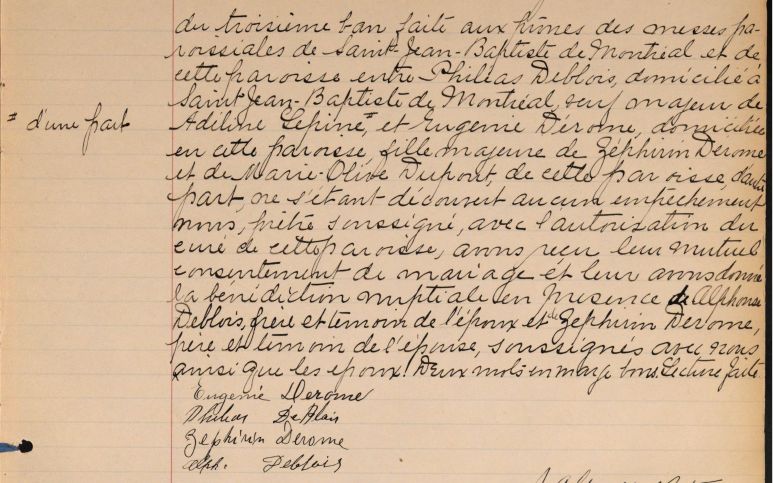 du troisième ban faite aux prônes des messes pa-
roissiales de Saint-Jean-Baptiste de Montréal et de
cette paroisse entre Philéas Deblois, domicilié à
Saint Jean-Baptiste de Montréal, veuf majeur de
# d'une part
Adéline Lepine #, et Eugénie Dérome, domiciliée
en cette paroisse, fille majeure de Zéphirin Dérome
et de Marie-Olive Dupont, de cette paroisse, d'autre
part, ne s'étant découvert aucun empêchement
nous, prêtre soussigné, avec l'autorisation du
curé de cette paroisse, avons reçu leur mutuel
consentement de mariage et leur avons donné
la bénédiction nuptiale en présence de Alphonse
Deblois, frère et témoin de l'époux et de Zephirin Derome,
père et témoin de l'épouse, soussignés avec nous
ainsi que les époux. Deux mots en marge bons. Lecture faite
Eugenie Derome
Phileas DeBlois
Zephirin Derome
Alph. Deblois